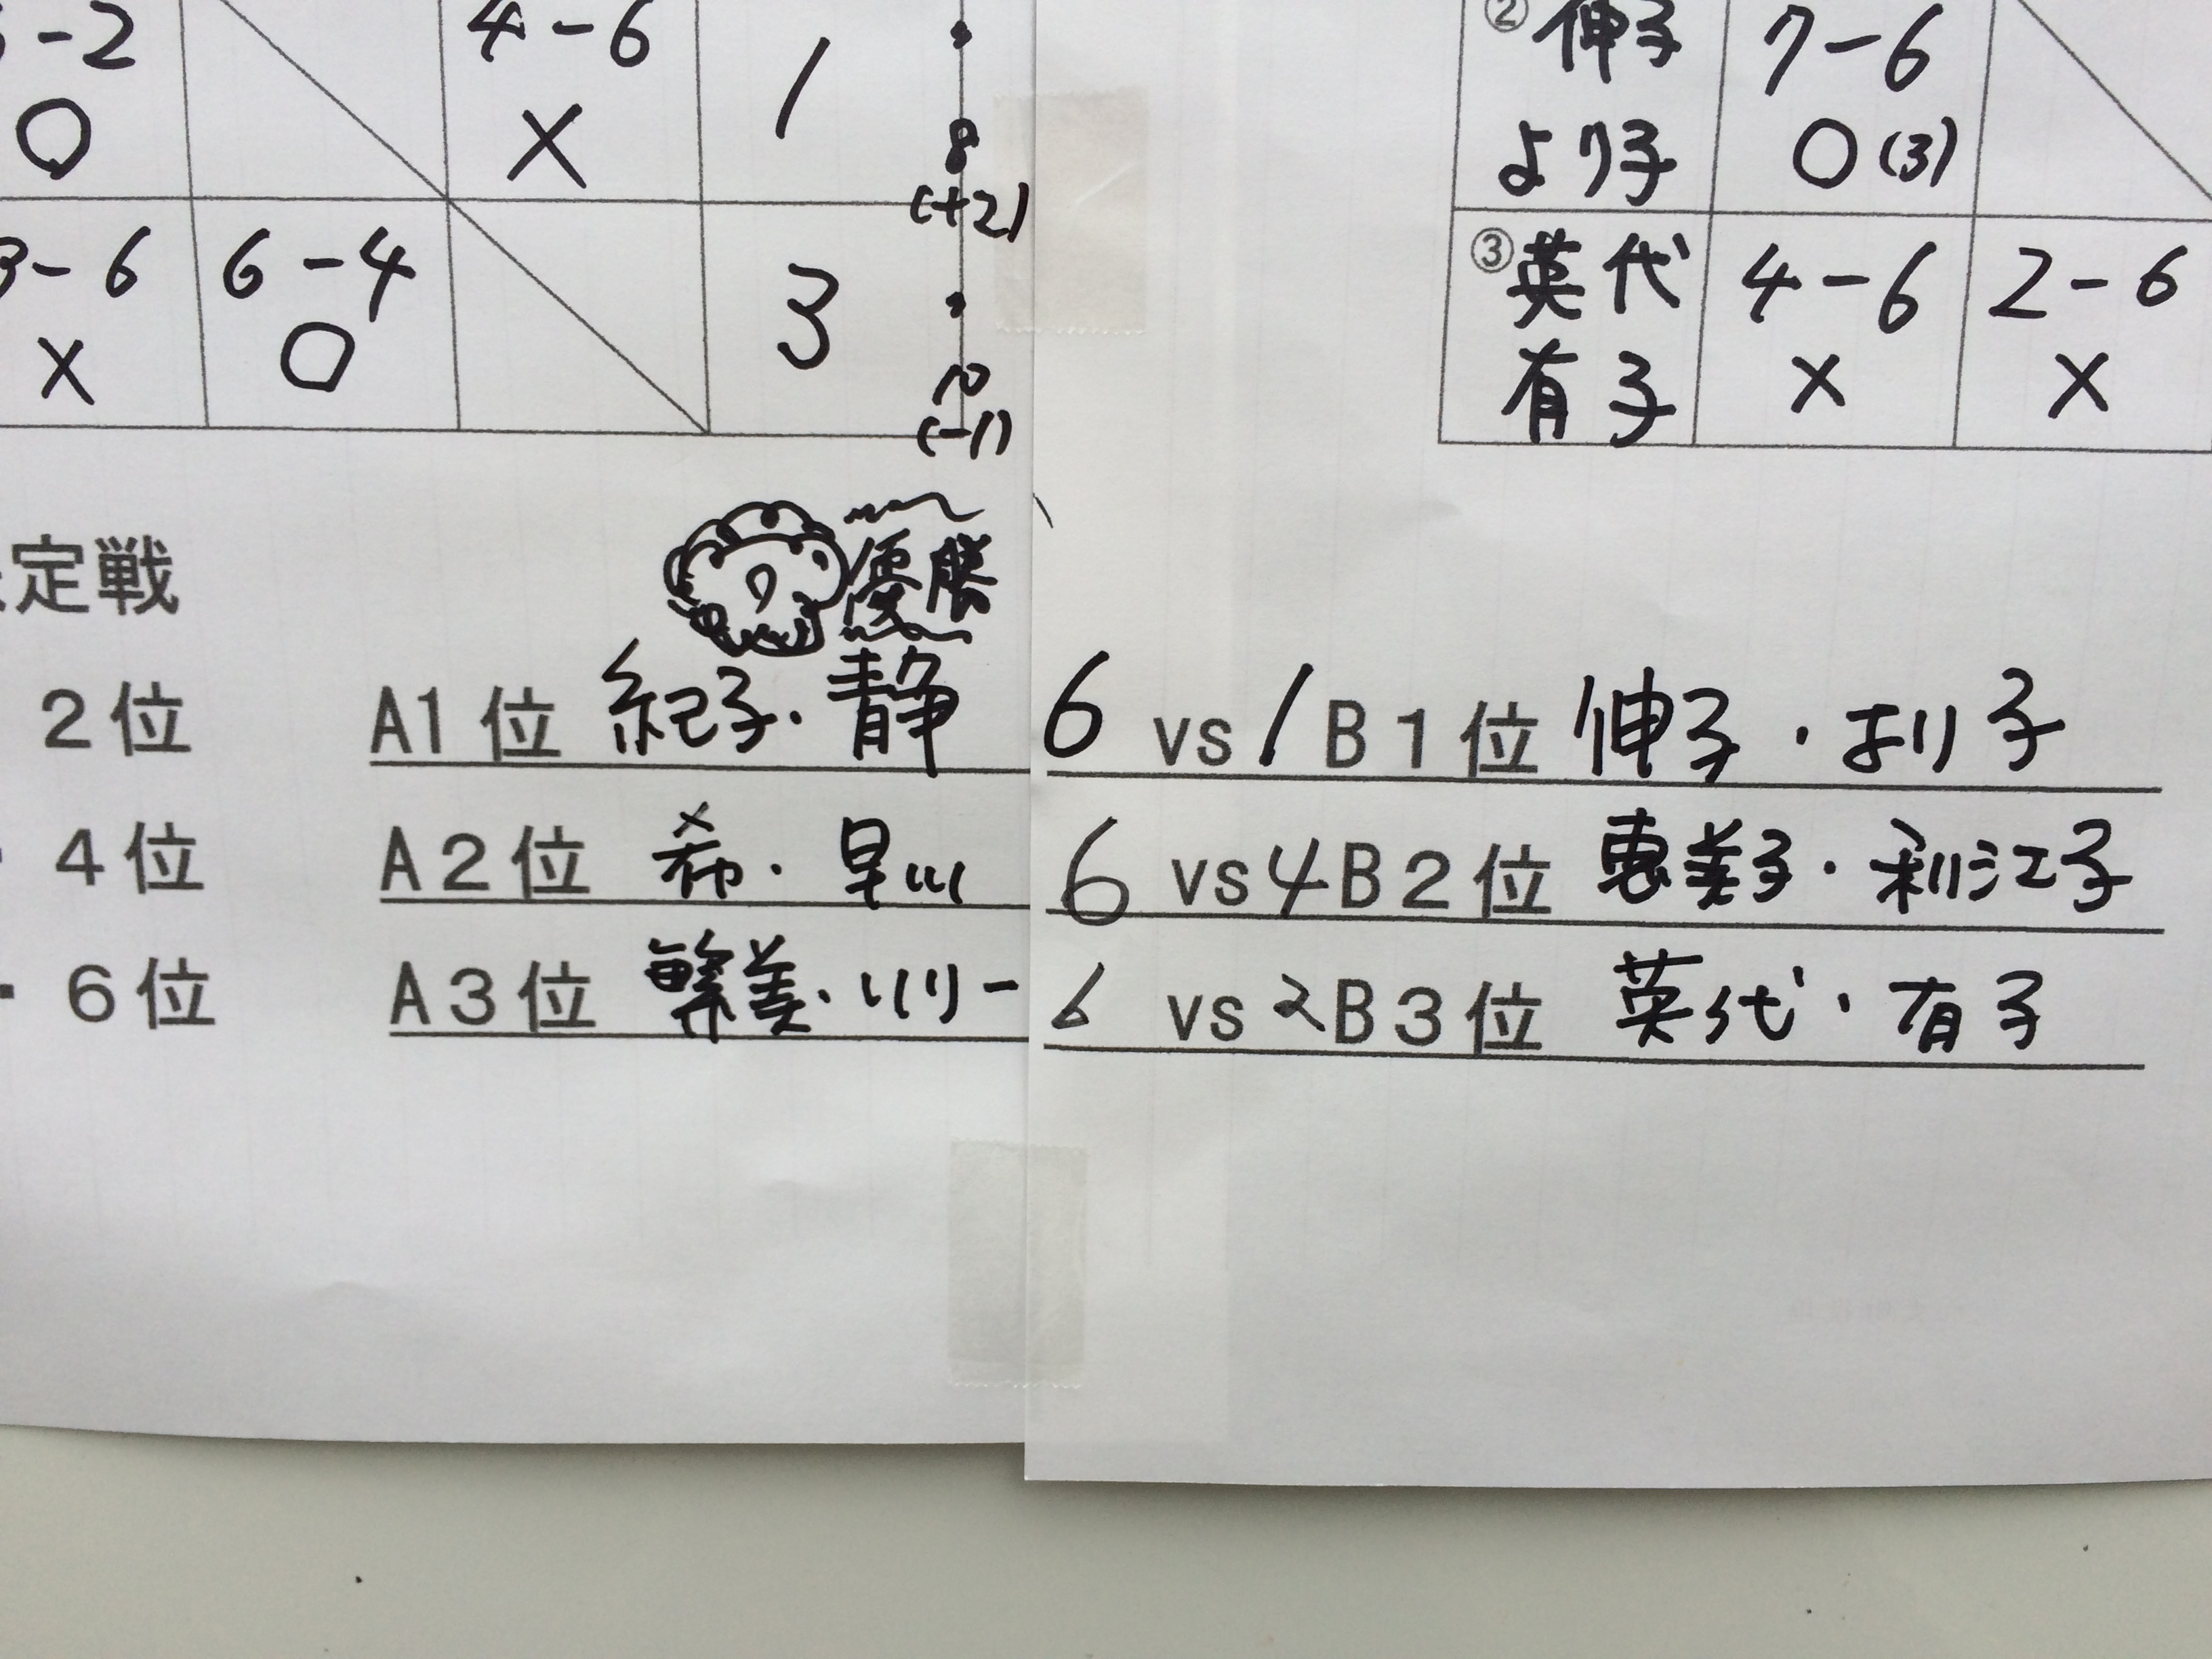 -2 4-6 1
○ × 8
(+2)
3-6 6-4 3
× ○ 10
(-1)
② 伸子 7-6
より子 ○(3)
③ 英代 4-6 2-6
有子 × ×
定戦
優勝
2位 A1位 紀子・静 6 vs 1 B1位 伸子・より子
・4位 A2位 希・早川 6 vs 4 B2位 恵美子・利江子
・6位 A3位 繁美・リリー 6 vs 2 B3位 英代・有子